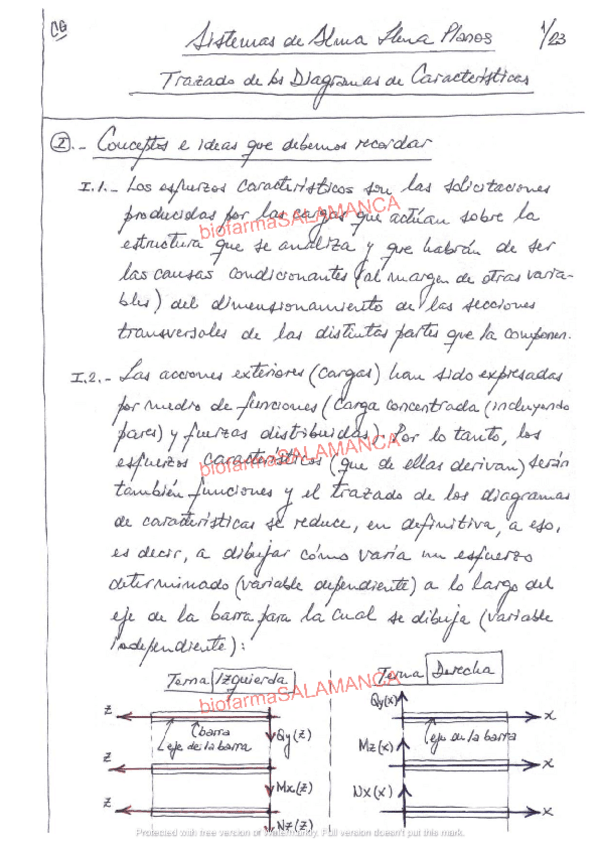 CG
Sistemas de Alma Llena Planos
1/23
Trazado de los Diagramas de Características
I.- Conceptos e ideas que debemos recordar
I.1.- Los esfuerzos característicos son las solicitaciones
producidas por las cargas que actúan sobre la
biofarmaSALAMANCA
estructura que se analiza y que habrán de ser
las causas condicionantes (al margen de otras varia-
bles) del dimensionamiento de las secciones
transversales de las distintas partes que la componen.
I.2.- Las acciones exteriores (cargas) han sido expresadas
por medio de funciones (carga concentrada (incluyendo
pares) y fuerzas distribuidas). Por lo tanto, los
biofarmaSALAMANCA
esfuerzos característicos (que de ellas derivan) serán
también funciones y el trazado de los diagramas
de características se reduce, en definitiva, a eso,
es decir, a dibujar cómo varía un esfuerzo
determinado (variable dependiente) a lo largo del
eje de la barra para la cual se dibuja (variable
independiente):
Terna Izquierda
Terna Derecha
biofarmaSALAMANCA
z
barra
eje de la barra
Qy(z)
z
Mx(z)
z
Nz(z)
Qy(x)
x
eje de la barra
Mz(x)
x
Nx(x)
x
Protected with free version of Watermarkly. Full version doesn't put this mark.